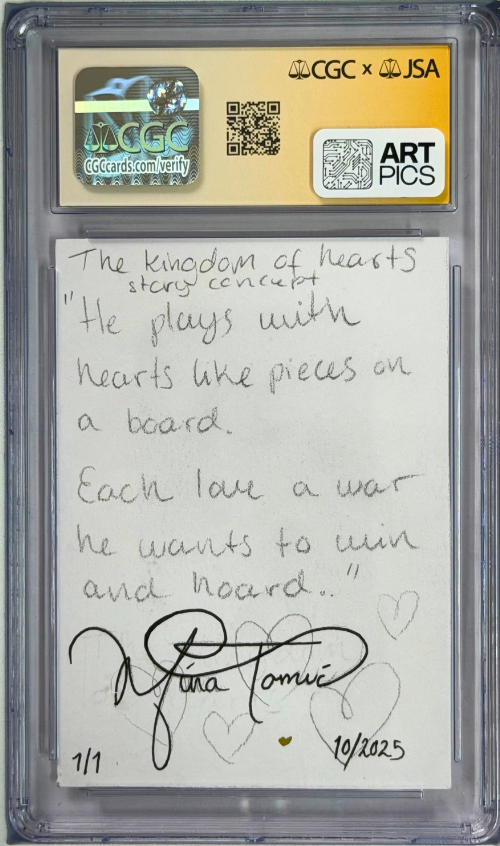 CGC x JSA
CGC
CGCcards.com/verify
ART
PICS
The kingdom of hearts
story concept
"He plays with
hearts like pieces on
a board.
Each love a war
he wants to win
and hoard.."
Nina Tomic
1/1
10/2025